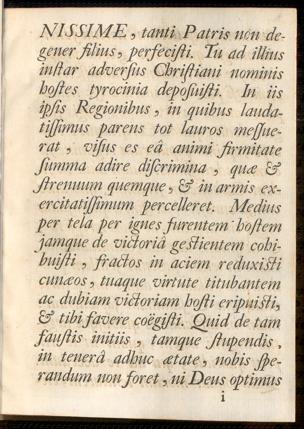 NISSIME, tanti Patris non de-
gener filius, perfecisti. Tu ad illius
instar adversus Christiani nominis
hostes tyrocinia deposuisti. In iis
ipsis Regionibus, in quibus lauda-
tissimus parens tot lauros messue-
rat, visus es eâ animi firmitate
summa adire discrimina, quæ &
strenuum quemque, & in armis ex-
ercitatissimum percelleret. Medius
per tela per ignes furentem hostem
jamque de victoriâ gestientem cohi-
buisti, fractos in aciem reduxisti
cunæos, tuaque virtute titubantem
ac dubiam victoriam hosti eripuisti,
& tibi favere coëgisti. Quid de tam
faustis initiis, tamque stupendis,
in tenerâ adhuc ætate, nobis spe-
randum non foret, ni Deus optimus
i